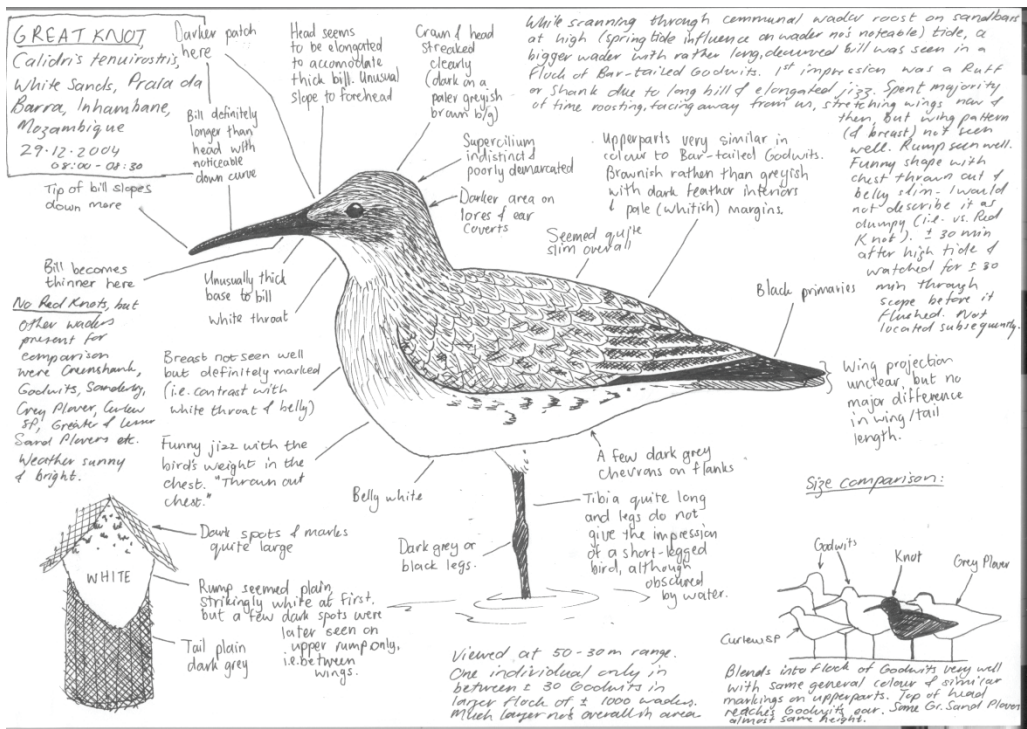 GREAT KNOT,
Calidris tenuirostris,
White Sands, Praia da
Barra, Inhambane,
Mozambique
29.12.2004
08:00 - 08:30
Darker patch
here
Head seems
to be elongated
to accomodate
thick bill. Unusual
slope to forehead
Crown & head
streaked
clearly
(dark on a
paler greyish
brown b/g)
While scanning through communal wader roost on sandbars
at high (spring tide influence on wader no's noteable) tide, a
bigger wader with rather long, decurved bill was seen in a
flock of Bar-tailed Godwits. 1st impression was a Ruff
or Shank due to long bill & elongated jizz. Spent majority
of time roosting, facing away from us, stretching wings now &
then, but wing pattern
(& breast) not seen
well. Rump seen well.
Funny shape with
chest thrown out &
belly slim - I would
not describe it as
dumpy (i.e. vs. Red
Knot). ± 30 min
after high tide &
watched for ± 30
min through
scope before it
flushed. Not
located subsequently.
Bill definitely
longer than
head with
noticeable
down curve
Supercilium
indistinct &
poorly demarcated
Upperparts very similar in
colour to Bar-tailed Godwits.
Brownish rather than greyish
with dark feather interiors
& pale (whitish) margins.
Tip of bill slopes
down more
Darker area on
lores & ear
coverts
Seemed quite
slim overall
Bill becomes
thinner here
Unusually thick
base to bill
White throat
Black primaries
No Red Knots, but
other waders
present for
comparison
were Greenshank,
Godwits, Sanderling,
Grey Plover, Curlew
SP, Greater & Lesser
Sand Plovers etc.
Weather sunny
& bright.
Breast not seen well
but definitely marked
(i.e. contrast with
white throat & belly)
Wing projection
unclear, but no
major difference
in wing/tail
length.
Funny jizz with the
bird's weight in the
chest. "Thrown out
chest."
Belly white
A few dark grey
chevrons on flanks
Tibia quite long
and legs do not
give the impression
of a short-legged
bird, although
obscured
by water.
Dark grey or
black legs.
Dark spots & marks
quite large
WHITE
Rump seemed plain,
strikingly white at first,
but a few dark spots were
later seen on
upper rump only,
i.e. between
wings.
Tail plain
dark grey
Viewed at 50-30m range.
One individual only in
between ± 30 Godwits in
larger flock of ± 1000 waders.
Much larger no's overall in area
Size comparison:
Godwits
Knot
Grey Plover
Curlew SP
Blends into flock of Godwits very well
with same general colour & similar
markings on upperparts. Top of head
reaches Godwits ear. Some Gr. Sand Plover
almost same height.